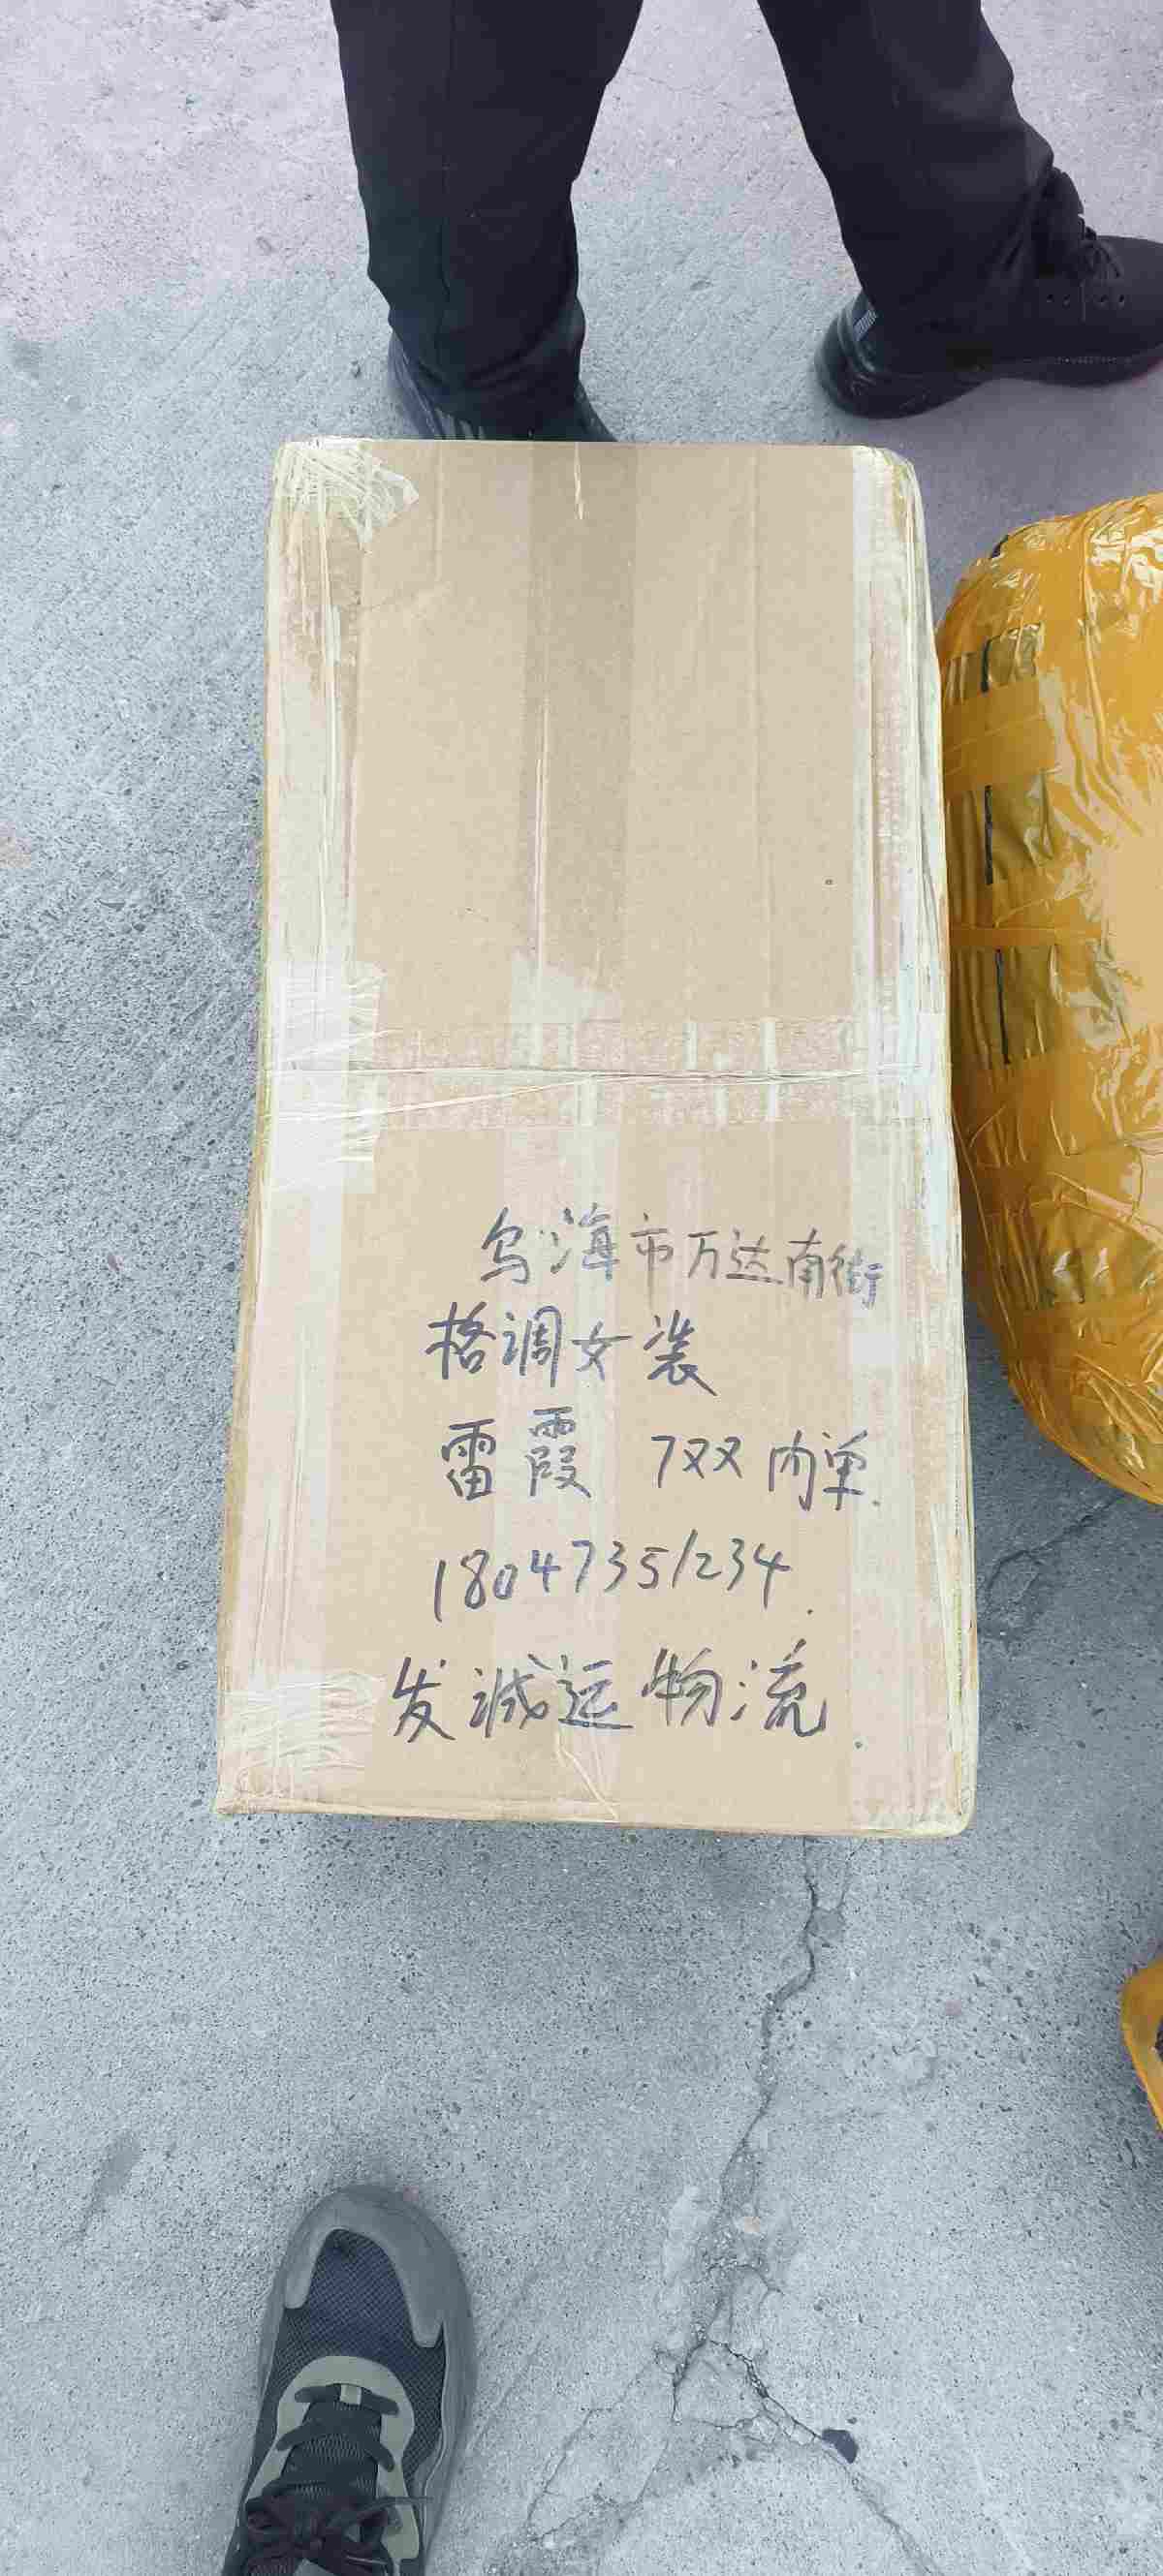 乌海市万达南街
格调女装
雷霞 7双 内单.
18047351234.
发诚运物流.